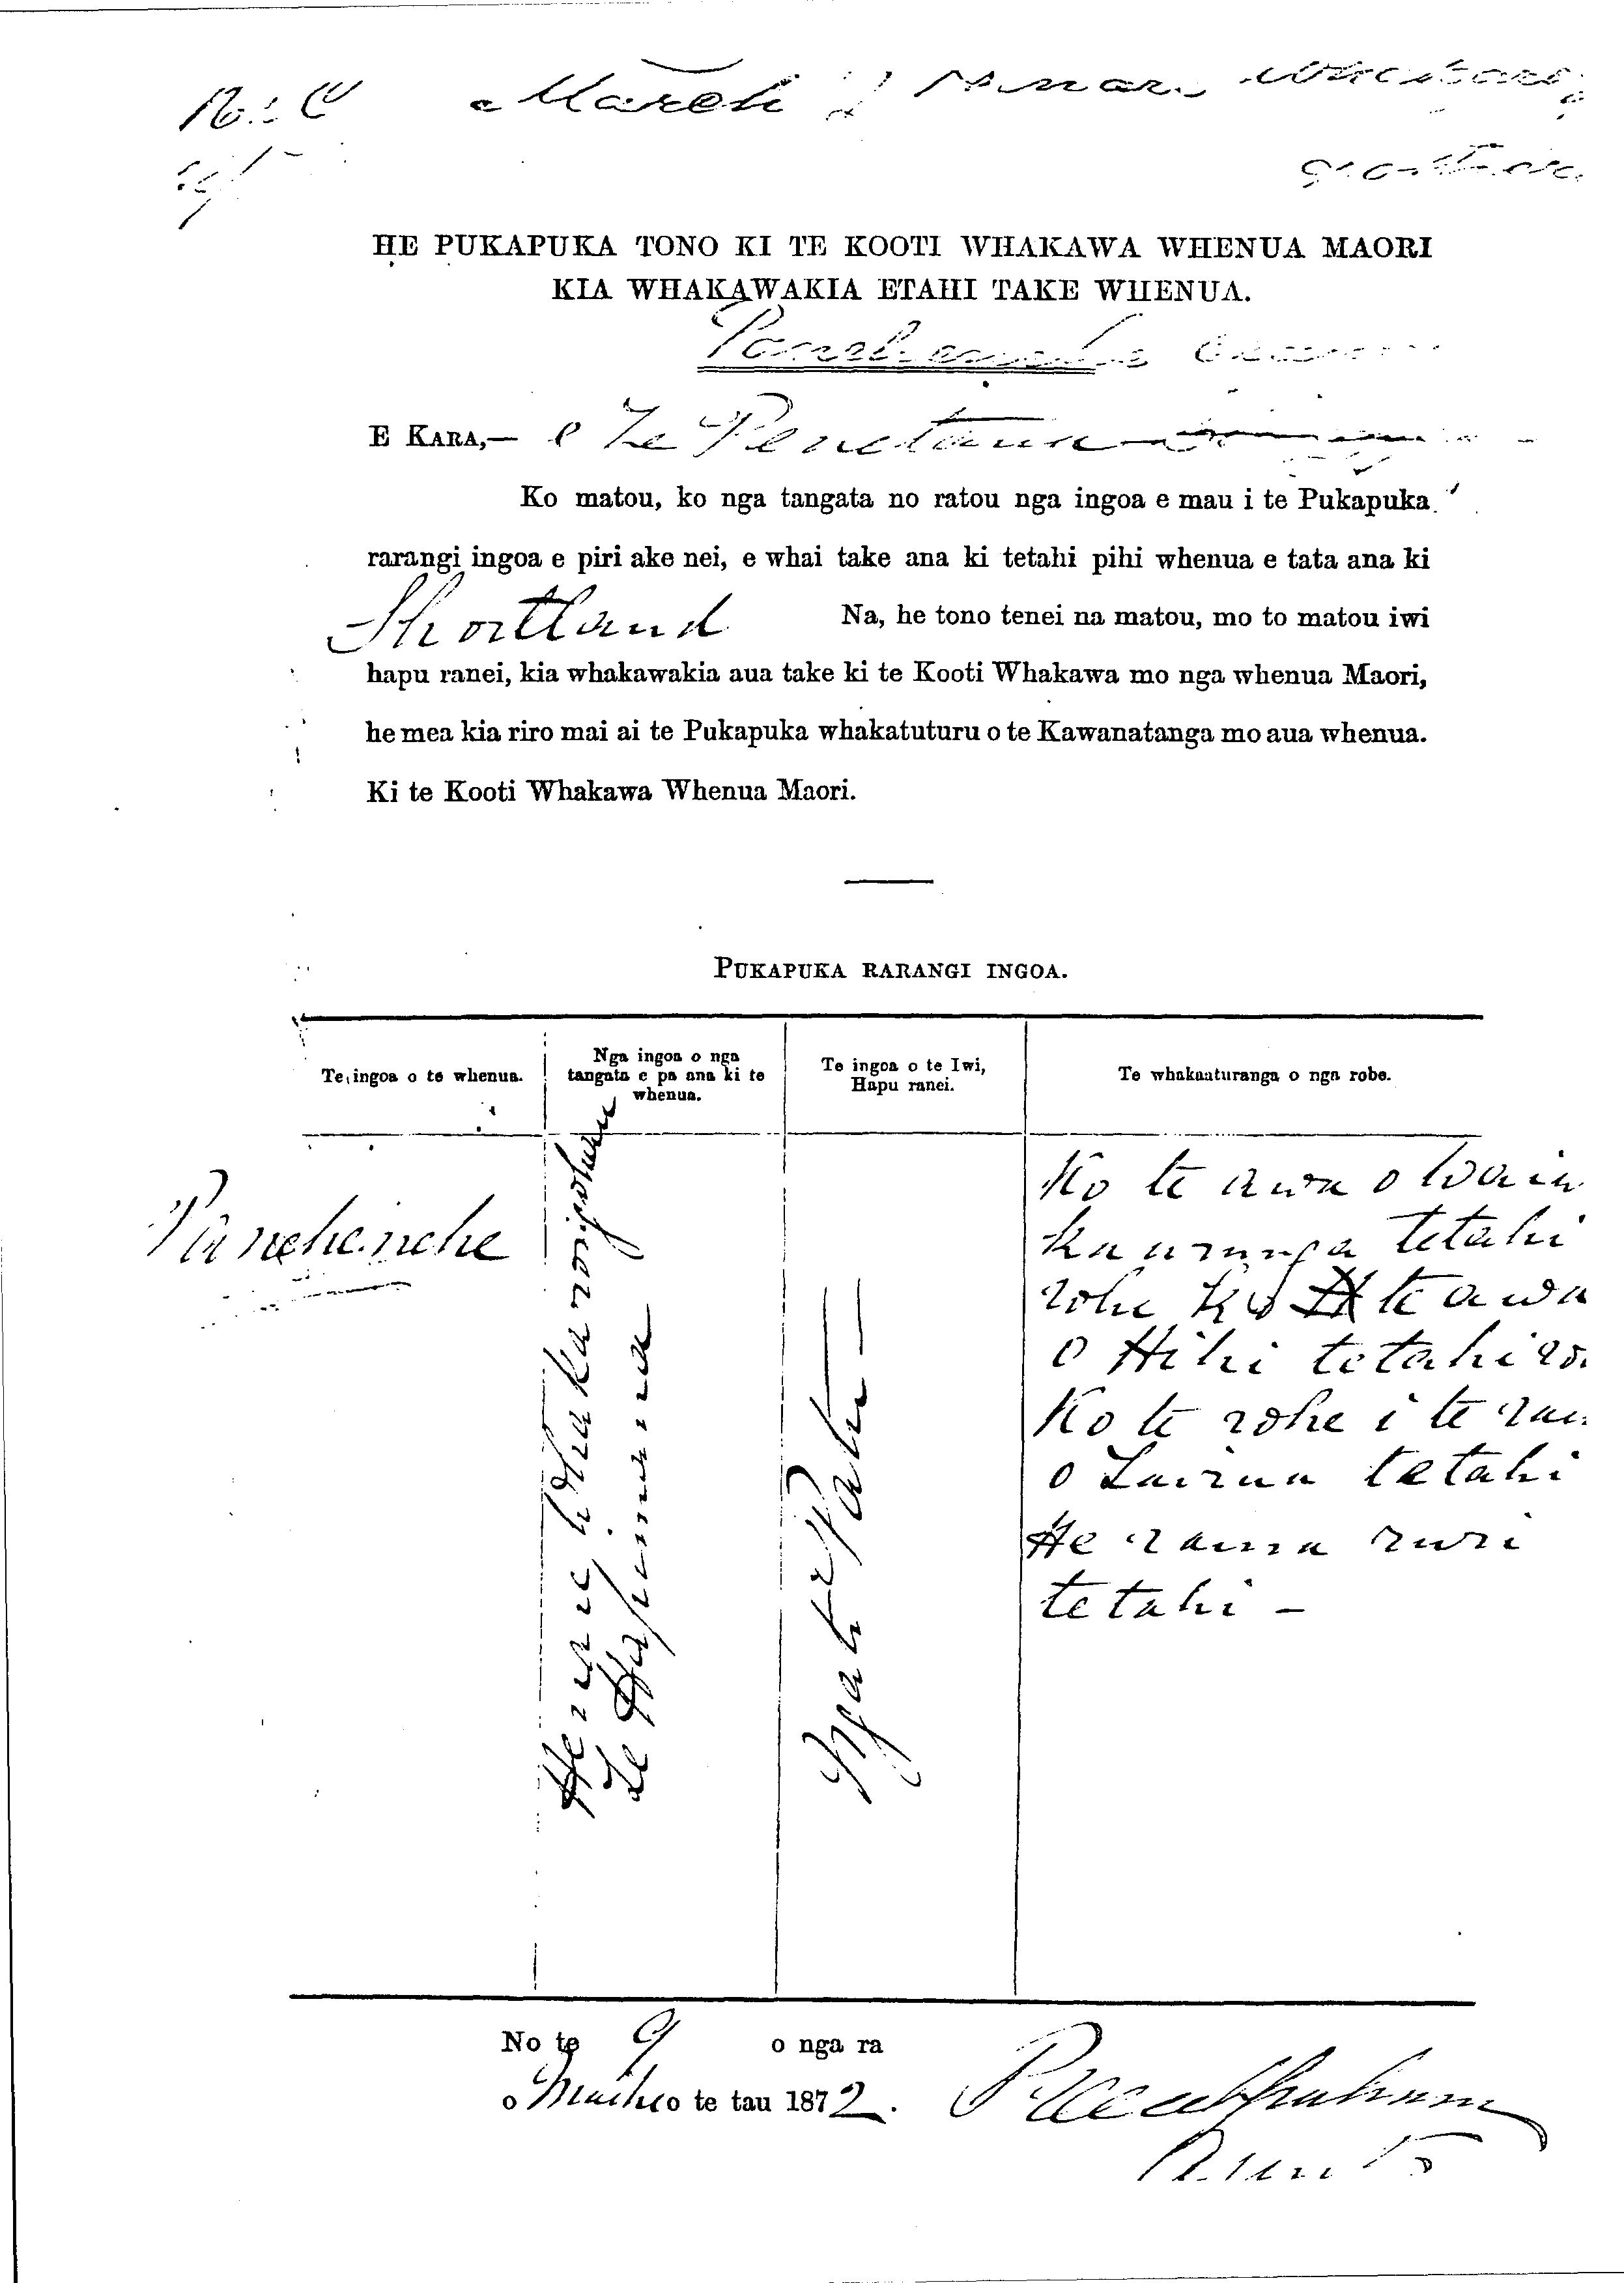 March
HE PUKAPUKA TONO KI TE KOOTI WHAKAWA WHENUA MAORI
KIA WHAKAWAKIA ETAHI TAKE WHENUA.
E KARA,— e Te Penetana
Ko matou, ko nga tangata no ratou nga ingoa e mau i te Pukapuka
rarangi ingoa e piri ake nei, e whai take ana ki tetahi pihi whenua e tata ana ki
Shortland Na, he tono tenei na matou, mo to matou iwi
hapu ranei, kia whakawakia aua take ki te Kooti Whakawa mo nga whenua Maori,
he mea kia riro mai ai te Pukapuka whakatuturu o te Kawanatanga mo aua whenua.
Ki te Kooti Whakawa Whenua Maori.
PUKAPUKA RARANGI INGOA.
Te ingoa o te whenua.
Nga ingoa o nga
tangata e pa ana ki te
whenua.
Te ingoa o te Iwi,
Hapu ranei.
Te whakaaturanga o nga robe.
Panehenehe
Te Hapimana
Ngati
Ko te awa o Wai
tetahi
rohe Ko te awa
o Hihi tetahi ro
Ko te rohe i te
o Tairua tetahi
He raina ruri
tetahi —
No te 9 o nga ra
o Maehe o te tau 1872.